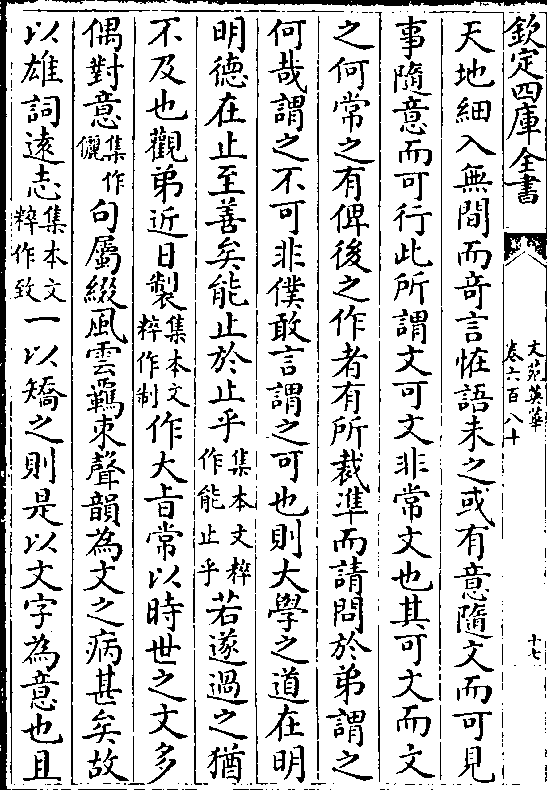 欽定四庫全書
文苑英華
卷六百八十
十七
天地細入無間而奇言怪語未之或有意隨文而可見
事隨意而可行此所謂文可文非常文也其可文而文
之何常之有俾後之作者有所裁準而請問於弟謂之
何哉謂之不可非僕敢言謂之可也則大學之道在明
明德在止至善矣能止於止乎集本文粹作能止乎若遂過之猶
不及也觀弟近日製集本文粹作制作大旨常以時世之文多
偶對意集作儷句屬綴風雲羈束聲韻為文之病甚矣故
以雄詞遠志集本文粹作致一以矯之則是以文字為意也且